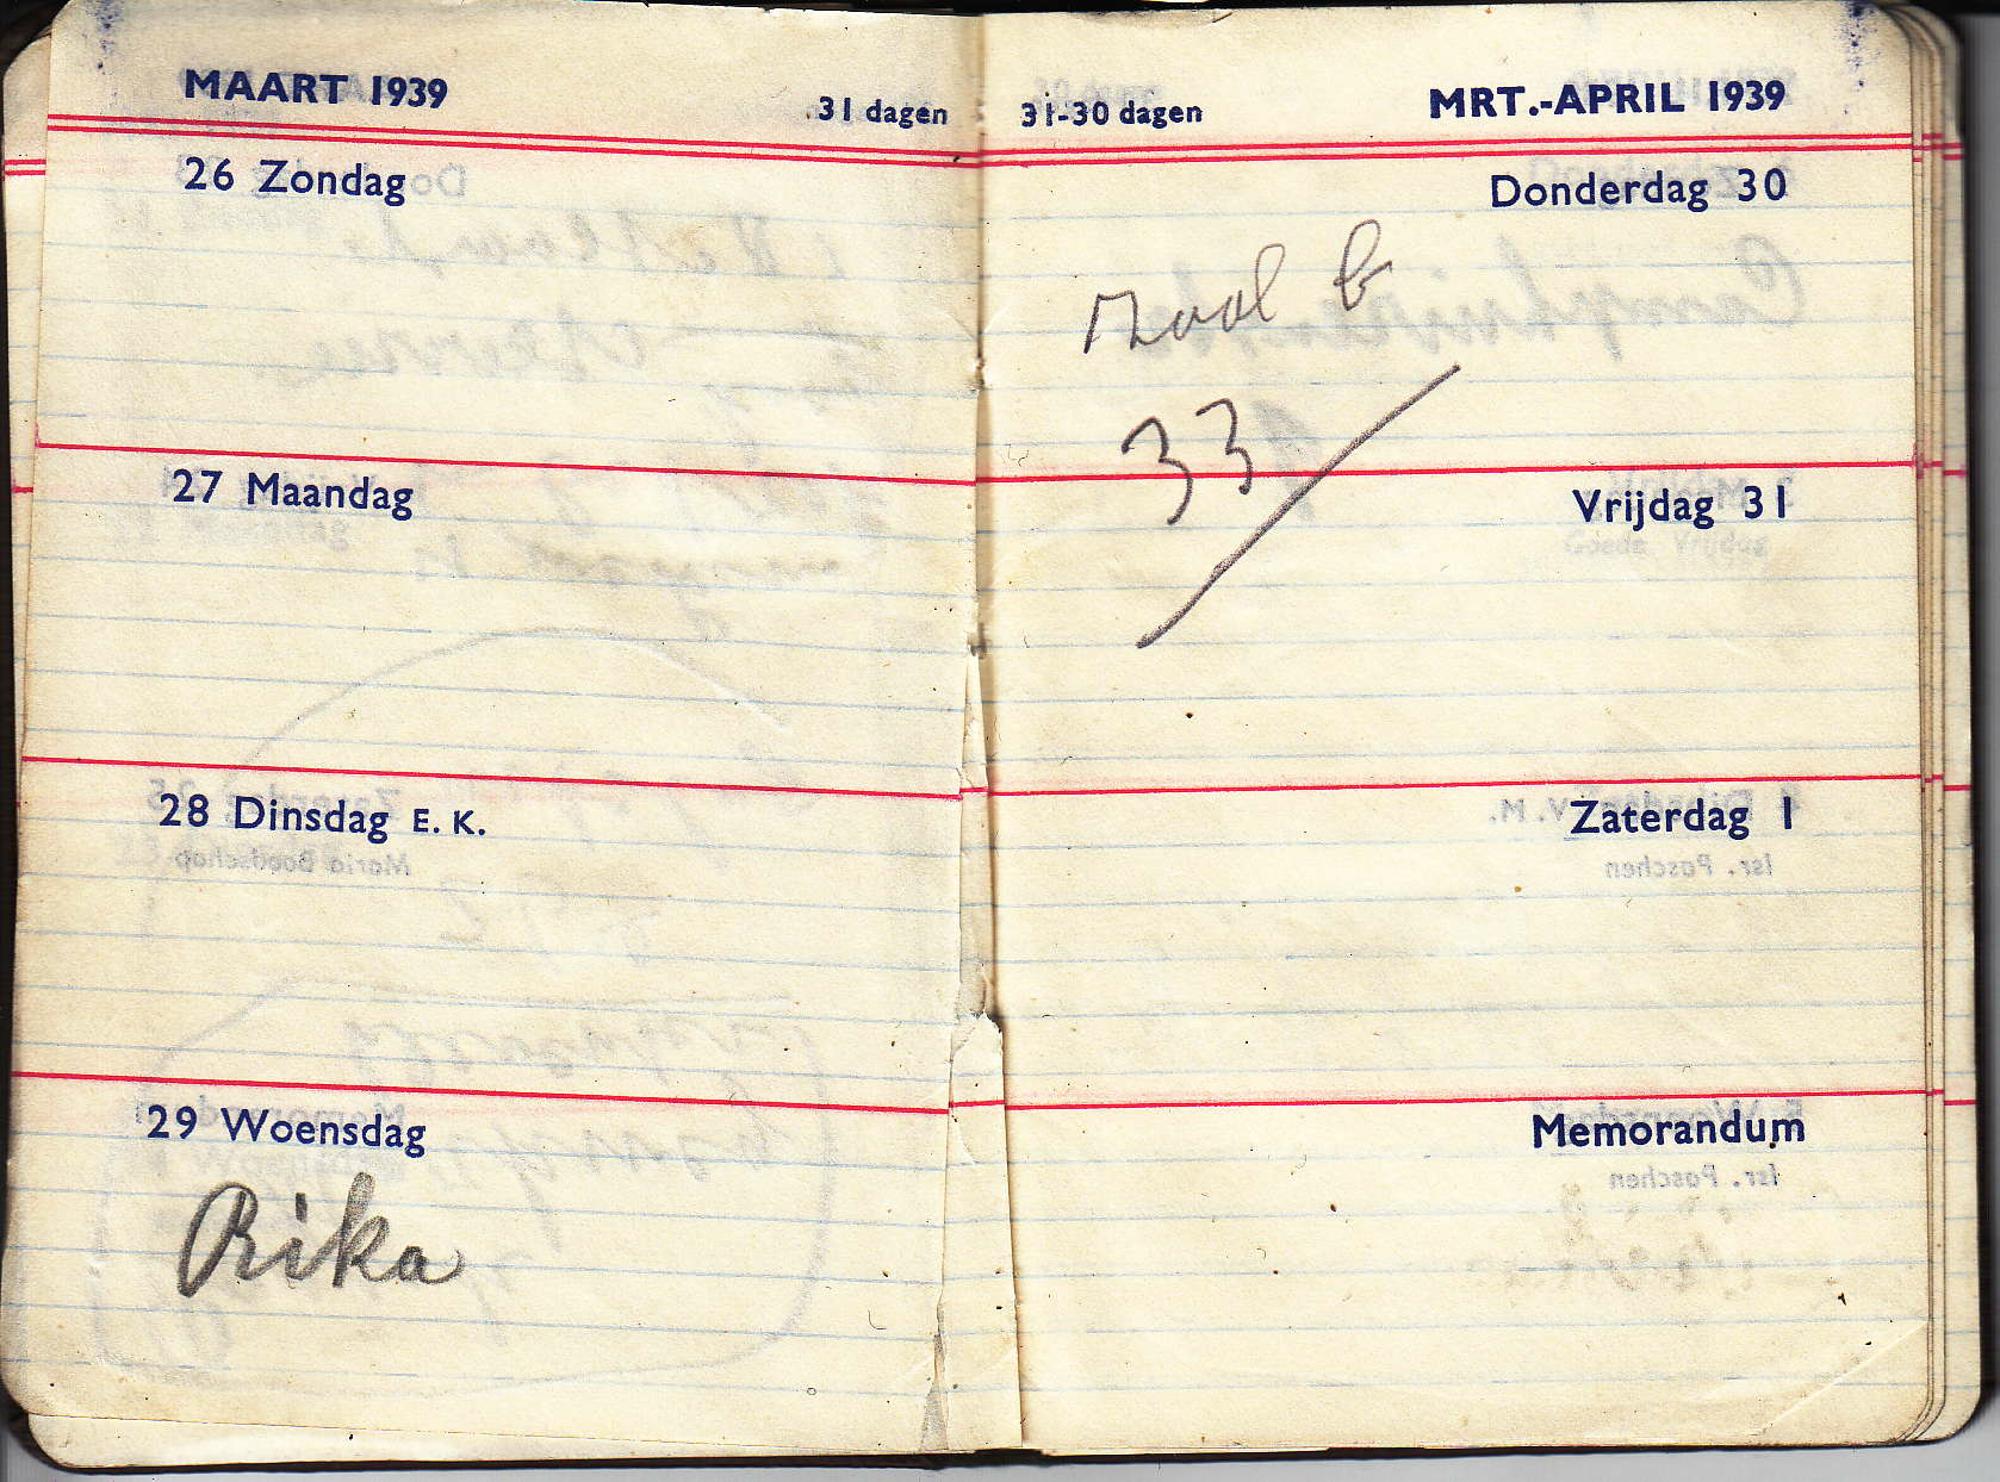 MAART 1939
31 dagen
26 Zondag
27 Maandag
28 Dinsdag E. K.
29 Woensdag
Rika
31-30 dagen
MRT.-APRIL 1939
Donderdag 30
33
Vrijdag 31
Zaterdag 1
Memorandum